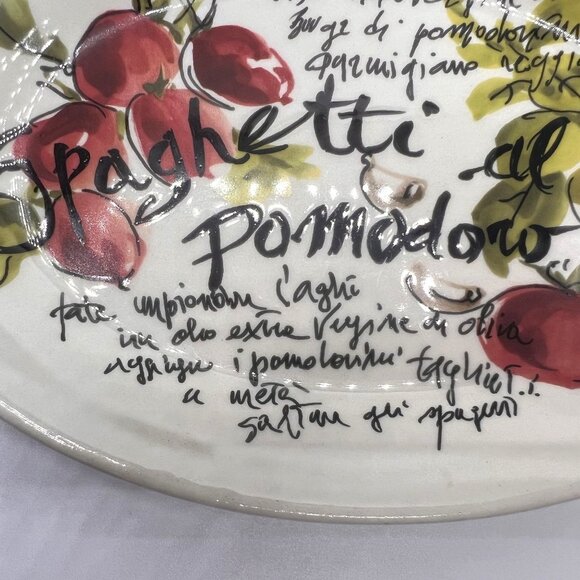 300 gr di pomodorini
parmigiano reggia
Spaghetti al
Pomodoro
fate imbiondire l'aglio
in olio extra vergine di oliva
i pomodorini tagliati
a metà
saltare gli spaghetti